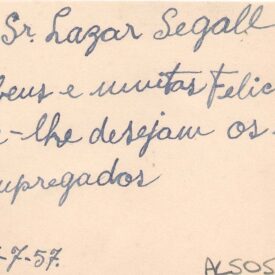 Sr. Lazar Segall
bens e muitas Felic
e-lhe desejam os
mpregados
-7-57.
ALSOS